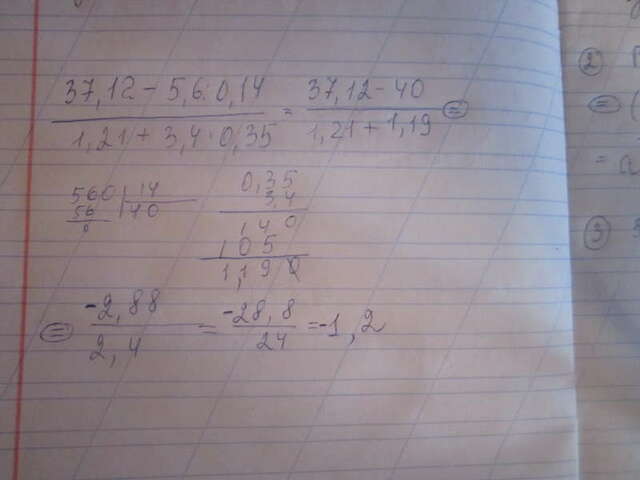 37,12 - 5,6:0,14 / 1,21 + 3,4·0,35 = 37,12 - 40 / 1,21 + 1,19 =
560 | 14
56 | 40
0
0,35
3,4
140
105
1,190
= -2,88 / 2,4 = -28,8 / 24 = -1,2
2
= (
=
3